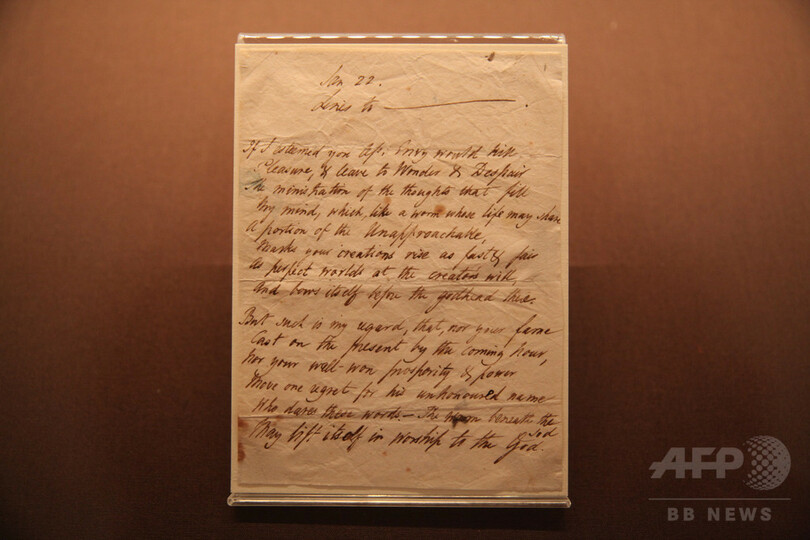 Jan 22.
Lines to ———.
If I esteemed you less, Envy would kill
Pleasure, & leave to Wonder & Despair
The ministration of the thoughts that fill
My mind, which, like a worm whose life may share
A portion of the Unapproachable,
Marks your creations rise as fast & fair
As perfect worlds at the creator's will,
And bows itself before the godhead there.
But such is my regard, that, nor your fame
Cast on the present by the coming hour,
Nor your well-won prosperity & power
Move one regret for his unhonoured name
Who dares these words.— The worm beneath the
sod
May lift itself in worship to the God.
AFP
BB NEWS